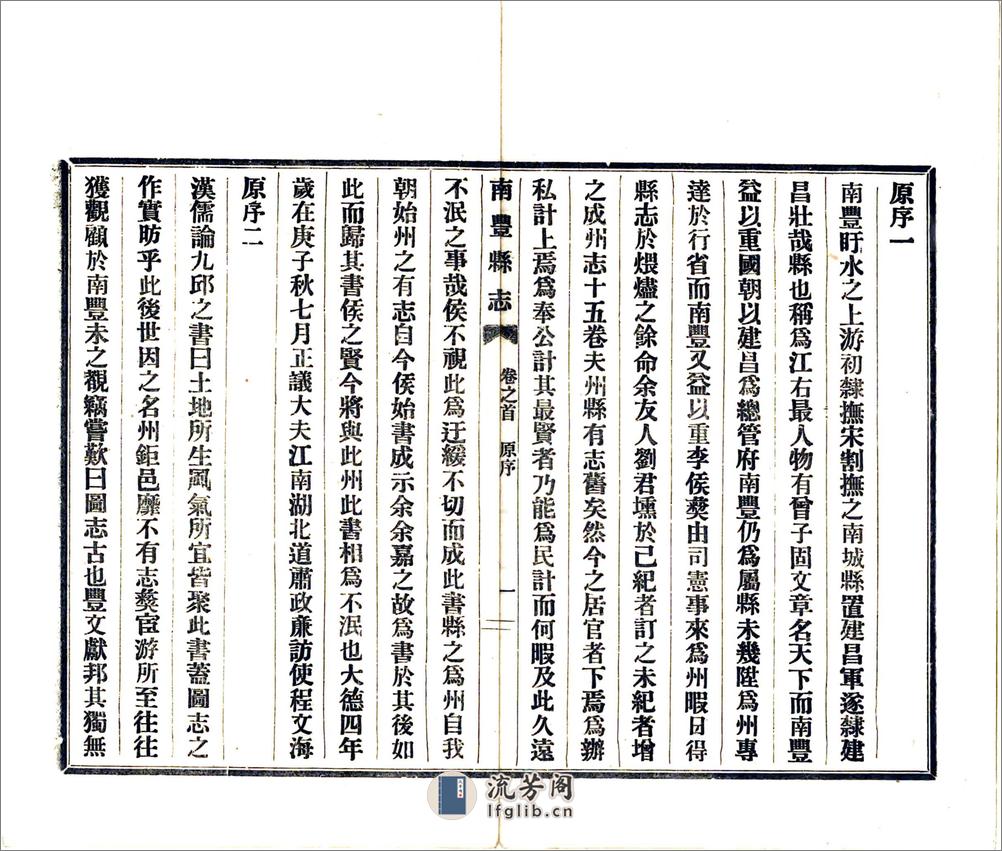 原序一
南豐盱水之上游初隸撫宋割撫之南城縣置建昌軍遂隸建
昌壯哉縣也稱爲江右最人物有曾子固文章名天下而南豐
益以重國朝以建昌爲總管府南豐仍爲屬縣未幾陞爲州專
達於行省而南豐又益以重李侯彝由司憲事來爲州暇日得
縣志於煨燼之餘命余友人劉君壎於已紀者訂之未紀者增
之成州志十五卷夫州縣有志舊矣然今之居官者下焉爲辦
私計上焉爲奉公計其最賢者乃能爲民計而何暇及此久遠
南豐縣志
卷之首
原序
一
不泯之事哉侯不視此爲迂緩不切而成此書縣之爲州自我
朝始州之有志自今侯始書成示余余嘉之故爲書於其後如
此而歸其書侯之賢今將與此州此書相爲不泯也大德四年
歲在庚子秋七月正議大夫江南湖北道肅政亷訪使程文海
原序二
漢儒論九邱之書曰土地所生風氣所宜皆聚此書蓋圖志之
作實昉乎此後世因之名州鉅邑靡不有志彝宦游所至往往
獲觀顧於南豐未之覩竊嘗歎曰圖志古也豐文獻邦其獨無
流芳阁
lfglib.cn